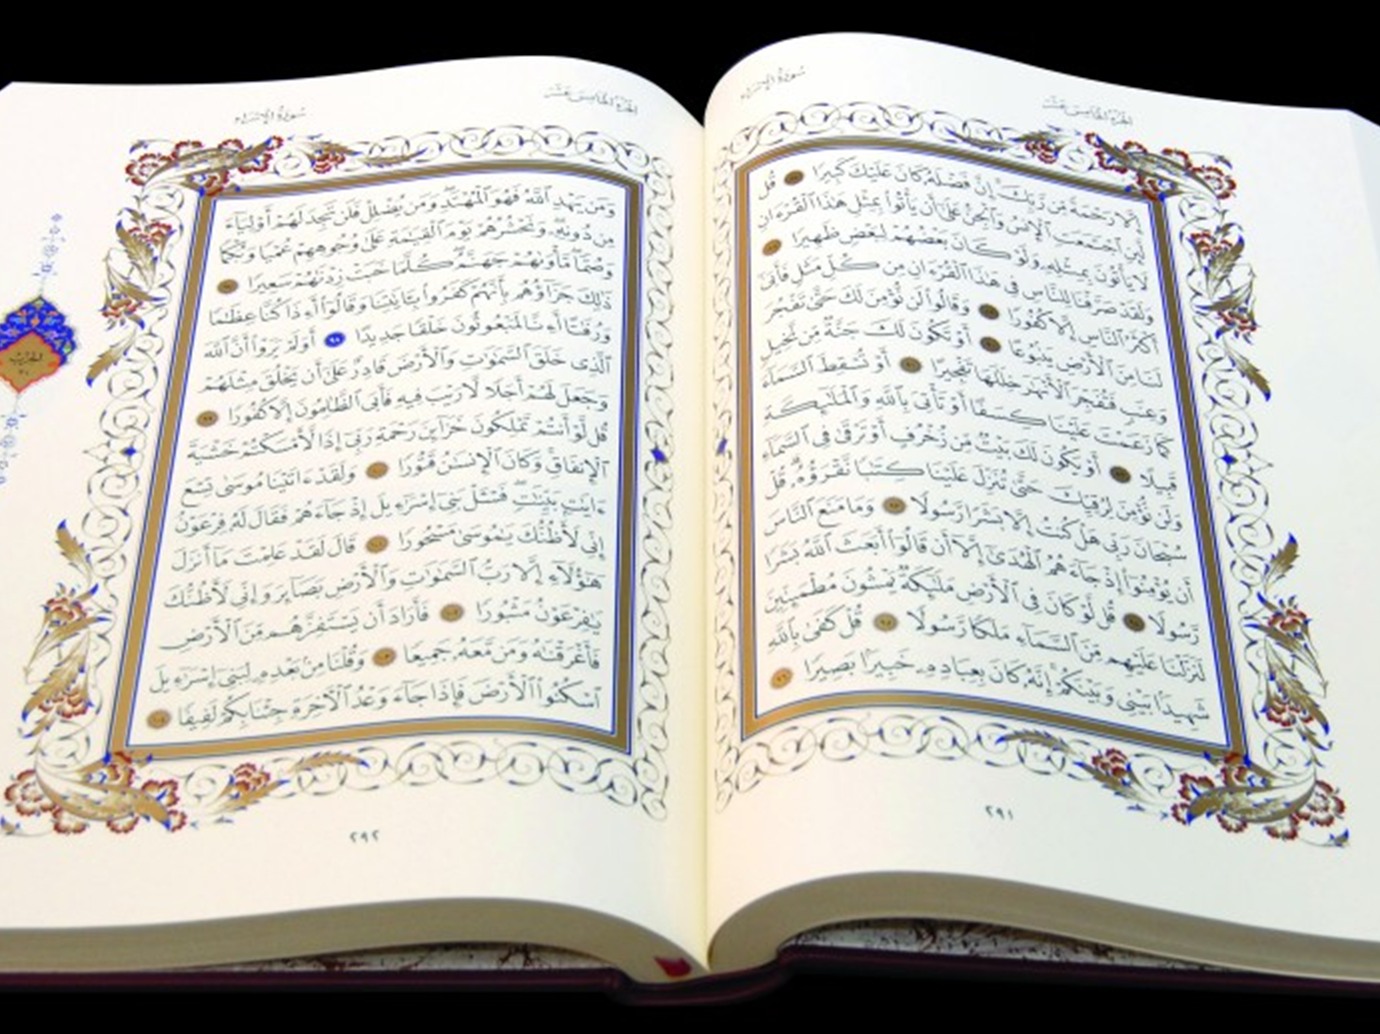 الجزء الخامس عشر
سورة الإسراء
إِلَّا رَحْمَةً مِّن رَّبِّكَ ۚ إِنَّ فَضْلَهُۥ كَانَ عَلَيْكَ كَبِيرًا ٨٧ قُل
لَّئِنِ ٱجْتَمَعَتِ ٱلْإِنسُ وَٱلْجِنُّ عَلَىٰٓ أَن يَأْتُوا۟ بِمِثْلِ هَٰذَا ٱلْقُرْءَانِ
لَا يَأْتُونَ بِمِثْلِهِۦ وَلَوْ كَانَ بَعْضُهُمْ لِبَعْضٍ ظَهِيرًا ٨٨
وَلَقَدْ صَرَّفْنَا لِلنَّاسِ فِى هَٰذَا ٱلْقُرْءَانِ مِن كُلِّ مَثَلٍ فَأَبَىٰٓ
أَكْثَرُ ٱلنَّاسِ إِلَّا كُفُورًا ٨٩ وَقَالُوا۟ لَن نُّؤْمِنَ لَكَ حَتَّىٰ تَفْجُرَ
لَنَا مِنَ ٱلْأَرْضِ يَنۢبُوعًا ٩٠ أَوْ تَكُونَ لَكَ جَنَّةٌ مِّن نَّخِيلٍ
وَعِنَبٍ فَتُفَجِّرَ ٱلْأَنْهَٰرَ خِلَٰلَهَا تَفْجِيرًا ٩١ أَوْ تُسْقِطَ ٱلسَّمَآءَ
كَمَا زَعَمْتَ عَلَيْنَا كِسَفًا أَوْ تَأْتِىَ بِٱللَّهِ وَٱلْمَلَٰٓئِكَةِ
قَبِيلًا ٩٢ أَوْ يَكُونَ لَكَ بَيْتٌ مِّن زُخْرُفٍ أَوْ تَرْقَىٰ فِى ٱلسَّمَآءِ
وَلَن نُّؤْمِنَ لِرُقِيِّكَ حَتَّىٰ تُنَزِّلَ عَلَيْنَا كِتَٰبًا نَّقْرَؤُهُۥ ۗ قُلْ
سُبْحَانَ رَبِّى هَلْ كُنتُ إِلَّا بَشَرًا رَّسُولًا ٩٣ وَمَا مَنَعَ ٱلنَّاسَ
أَن يُؤْمِنُوٓا۟ إِذْ جَآءَهُمُ ٱلْهُدَىٰٓ إِلَّآ أَن قَالُوٓا۟ أَبَعَثَ ٱللَّهُ بَشَرًا
رَّسُولًا ٩٤ قُل لَّوْ كَانَ فِى ٱلْأَرْضِ مَلَٰٓئِكَةٌ يَمْشُونَ مُطْمَئِنِّينَ
لَنَزَّلْنَا عَلَيْهِم مِّنَ ٱلسَّمَآءِ مَلَكًا رَّسُولًا ٩٥ قُلْ كَفَىٰ بِٱللَّهِ
شَهِيدًۢا بَيْنِى وَبَيْنَكُمْ ۚ إِنَّهُۥ كَانَ بِعِبَادِهِۦ خَبِيرًۢا بَصِيرًا ٩٦
٢٩١
الجزء الخامس عشر
سورة الإسراء
وَمَن يَهْدِ ٱللَّهُ فَهُوَ ٱلْمُهْتَدِ ۖ وَمَن يُضْلِلْ فَلَن تَجِدَ لَهُمْ أَوْلِيَآءَ
مِن دُونِهِۦ ۖ وَنَحْشُرُهُمْ يَوْمَ ٱلْقِيَٰمَةِ عَلَىٰ وُجُوهِهِمْ عُمْيًا وَبُكْمًا
وَصُمًّا ۖ مَّأْوَىٰهُمْ جَهَنَّمُ ۖ كُلَّمَا خَبَتْ زِدْنَٰهُمْ سَعِيرًا ٩٧
ذَٰلِكَ جَزَآؤُهُم بِأَنَّهُمْ كَفَرُوا۟ بِـَٔايَٰتِنَا وَقَالُوٓا۟ أَءِذَا كُنَّا عِظَٰمًا
وَرُفَٰتًا أَءِنَّا لَمَبْعُوثُونَ خَلْقًا جَدِيدًا ٩٨ أَوَلَمْ يَرَوْا۟ أَنَّ ٱللَّهَ
ٱلَّذِى خَلَقَ ٱلسَّمَٰوَٰتِ وَٱلْأَرْضَ قَادِرٌ عَلَىٰٓ أَن يَخْلُقَ مِثْلَهُمْ
وَجَعَلَ لَهُمْ أَجَلًا لَّا رَيْبَ فِيهِ فَأَبَى ٱلظَّٰلِمُونَ إِلَّا كُفُورًا ٩٩
قُل لَّوْ أَنتُمْ تَمْلِكُونَ خَزَآئِنَ رَحْمَةِ رَبِّىٓ إِذًا لَّأَمْسَكْتُمْ خَشْيَةَ
ٱلْإِنفَاقِ ۚ وَكَانَ ٱلْإِنسَٰنُ قَتُورًا ١٠٠ وَلَقَدْ ءَاتَيْنَا مُوسَىٰ تِسْعَ
ءَايَٰتٍۭ بَيِّنَٰتٍ ۖ فَسْـَٔلْ بَنِىٓ إِسْرَٰٓءِيلَ إِذْ جَآءَهُمْ فَقَالَ لَهُۥ فِرْعَوْنُ
إِنِّى لَأَظُنُّكَ يَٰمُوسَىٰ مَسْحُورًا ١٠١ قَالَ لَقَدْ عَلِمْتَ مَآ أَنزَلَ
هَٰٓؤُلَآءِ إِلَّا رَبُّ ٱلسَّمَٰوَٰتِ وَٱلْأَرْضِ بَصَآئِرَ وَإِنِّى لَأَظُنُّكَ
يَٰفِرْعَوْنُ مَثْبُورًا ١٠٢ فَأَرَادَ أَن يَسْتَفِزَّهُم مِّنَ ٱلْأَرْضِ
فَأَغْرَقْنَٰهُ وَمَن مَّعَهُۥ جَمِيعًا ١٠٣ وَقُلْنَا مِنۢ بَعْدِهِۦ لِبَنِىٓ إِسْرَٰٓءِيلَ
ٱسْكُنُوا۟ ٱلْأَرْضَ فَإِذَا جَآءَ وَعْدُ ٱلْءَاخِرَةِ جِئْنَا بِكُمْ لَفِيفًا ١٠٤
٢٩٢